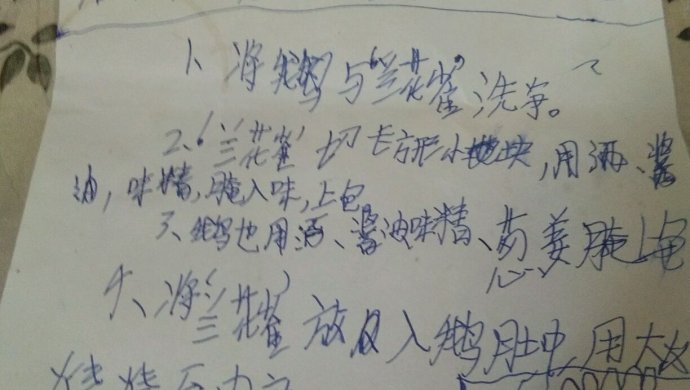 1、将鹅与“兰花雀”洗净。
2、“兰花雀”切长方形小块,用酒、酱
油,味精,腌入味,上色
3、鹅也用酒、酱油味精、葱姜腌上色
4、将“兰花雀”放入鹅肚中用大火